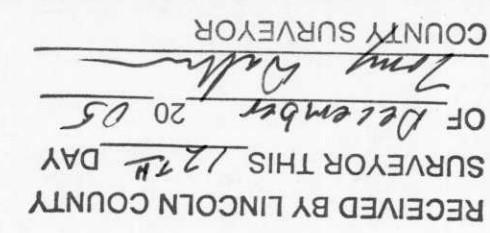 RECEIVED BY LINCOLN COUNTY
SURVEYOR THIS 12TH DAY
OF December 20 05
Tony
COUNTY SURVEYOR